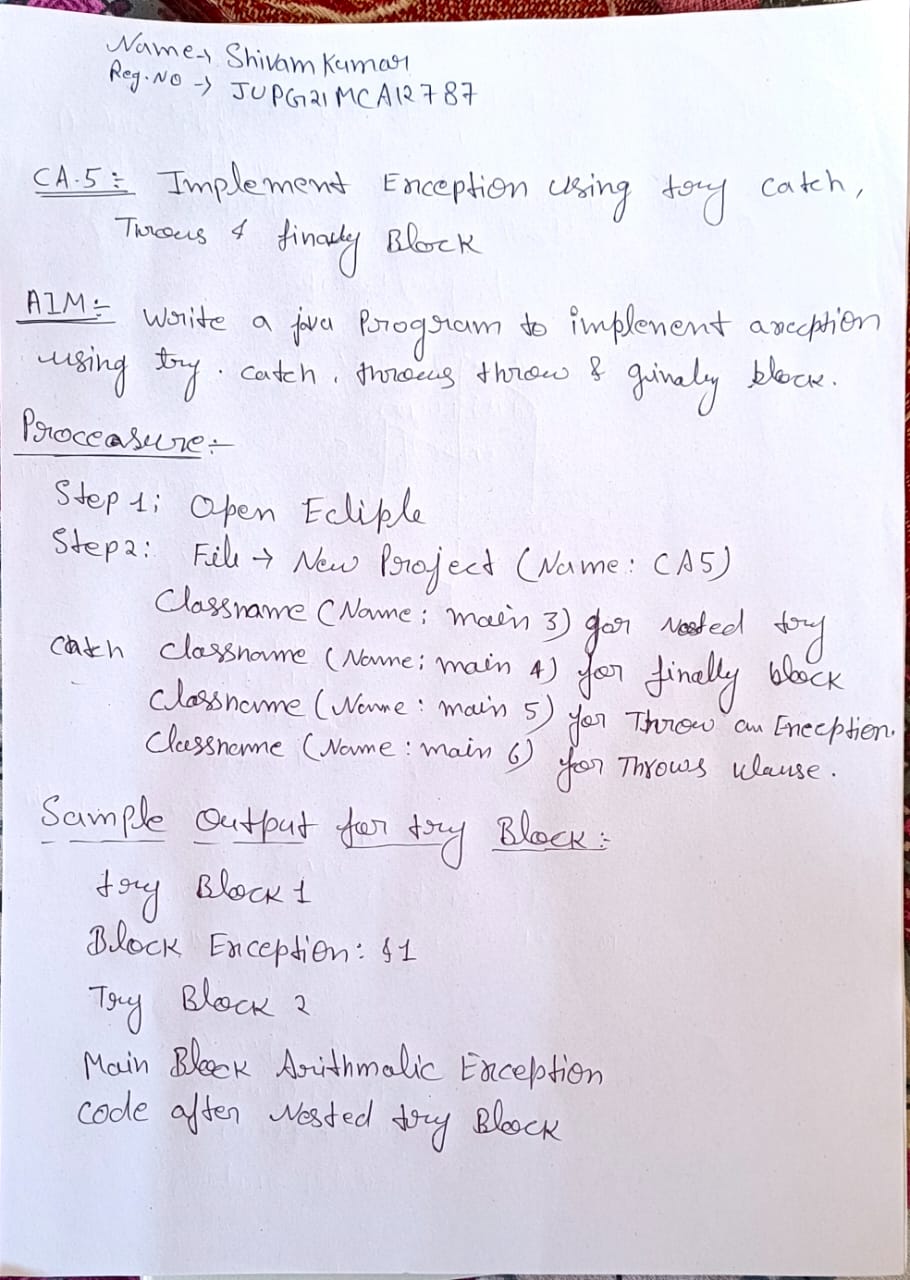 Name → Shivam Kumar
Reg. No → JUPG21MCA12787
CA-5:- Implement Exception using try catch,
Throws & finally Block
AIM:- Write a java Program to implement axception
using try. catch. throws throw & ginaly block.
Proceasure:-
Step 1: Open Ecliple
Step 2: File → New Project (Name: CA5)
Classname (Name: main 3) for Nested try
catch Classname (Name: main 4) for finally block
Classname (Name: main 5) for Throw an Eneeption.
Classname (Name: main 6) for Throws ulause.
Sample Output for try Block:-
try Block 1
Block Exception: $1
Try Block 2
Main Block Arithmalic Exception
Code after Nested try Block